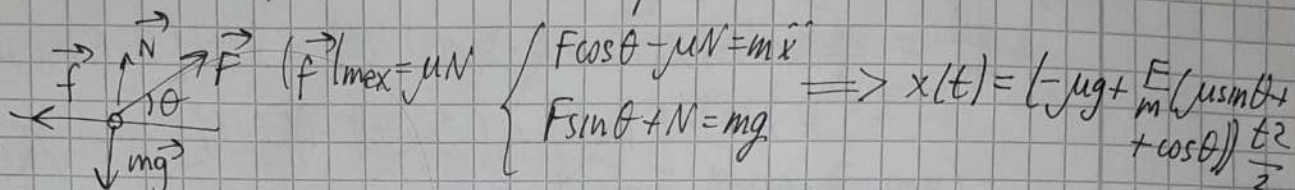 f⃗ N⃗ F⃗ θ mg⃗
|f⃗|mex=μN
{ Fcosθ-μN=mẍ
Fsinθ+N=mg
=> x(t)=(-μg+F/m(μsinθ+
+cosθ))t2/2